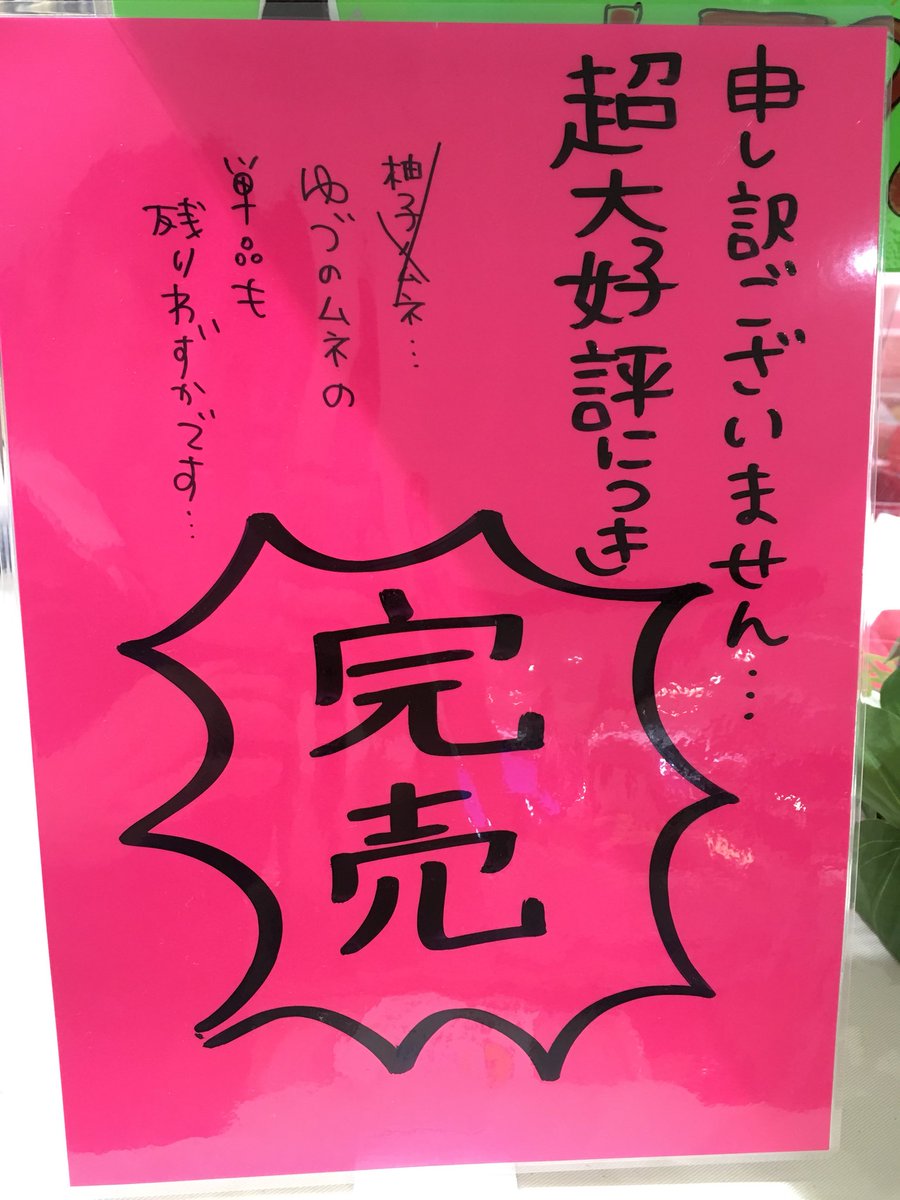 申し訳ございません…
超大好評につき
完売
柚子ムネ…
ゆづのムネの
単品も
残りわずかです…